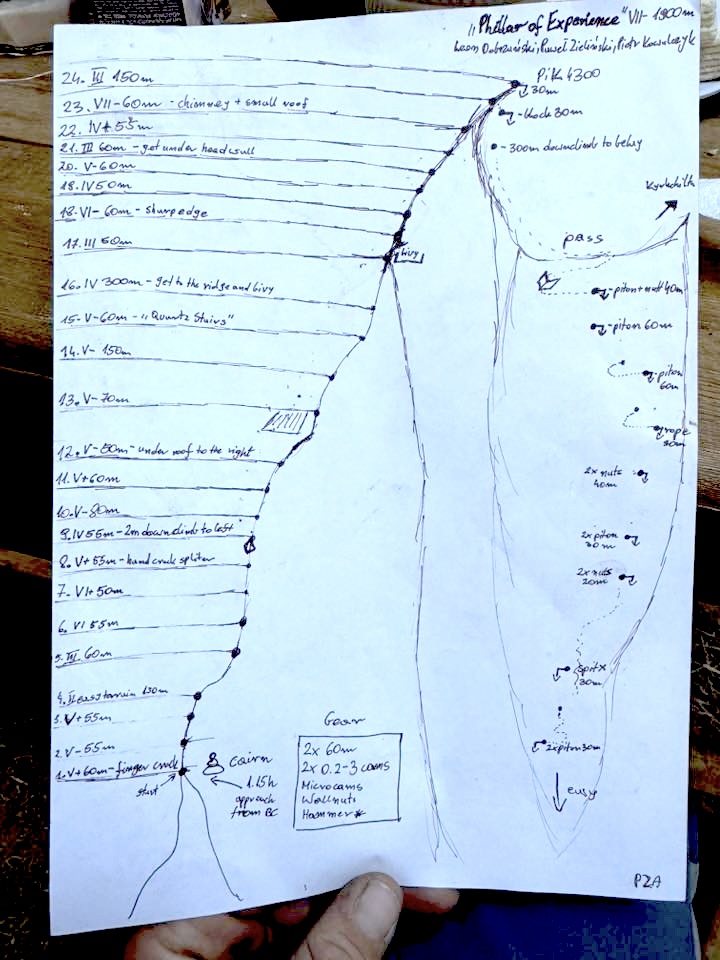 „Phillar of Experience" VII- 1900m
Leon Dobrzański, Paweł Zieliński, Piotr Kowalczyk
24. III 150m
23. VII- 60m - chimney + small roof
22. IV+ 55m
21. III 60m - get under headwall
20. V- 60m
18. IV 50m
18. VI- 60m - sharp edge
17. III 50m
16. IV 300m - get to the ridge and bivy
15. V- 60m - „Quartz Stairs"
14. V- 150m
13. V- 70m
12. V- 50m - under roof to the right
11. V+ 60m
10. V- 80m
9. IV 55m - 2m downclimb to left
8. V+ 55m - hand crack spliter
7. VI+ 50m
6. VI 55m
5. III 60m
4. II easy terrain 130m
3. V+ 55m
2. V- 55m
1. V+ 60m - finger crack
start
cairn
1.15h
approach
from BC
bivy
Gear
2x 60m
2x 0.2-3 cams
Microcams
Wallnuts
Hammer*
Pik 4300
30m
- block 30m
- 300m downclimb to belay
pass
- piton + nut 40m
- piton 60m
- piton
60m
rope
30m
2x nuts
40m
2x piton
30m
2x nuts
20m
30m
2x piton 30m
easy
PZA